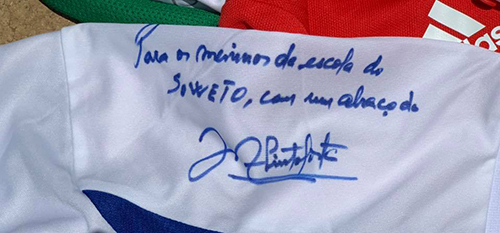 Para os meninos da escola do
SOWETO, com um abraço do
adidas